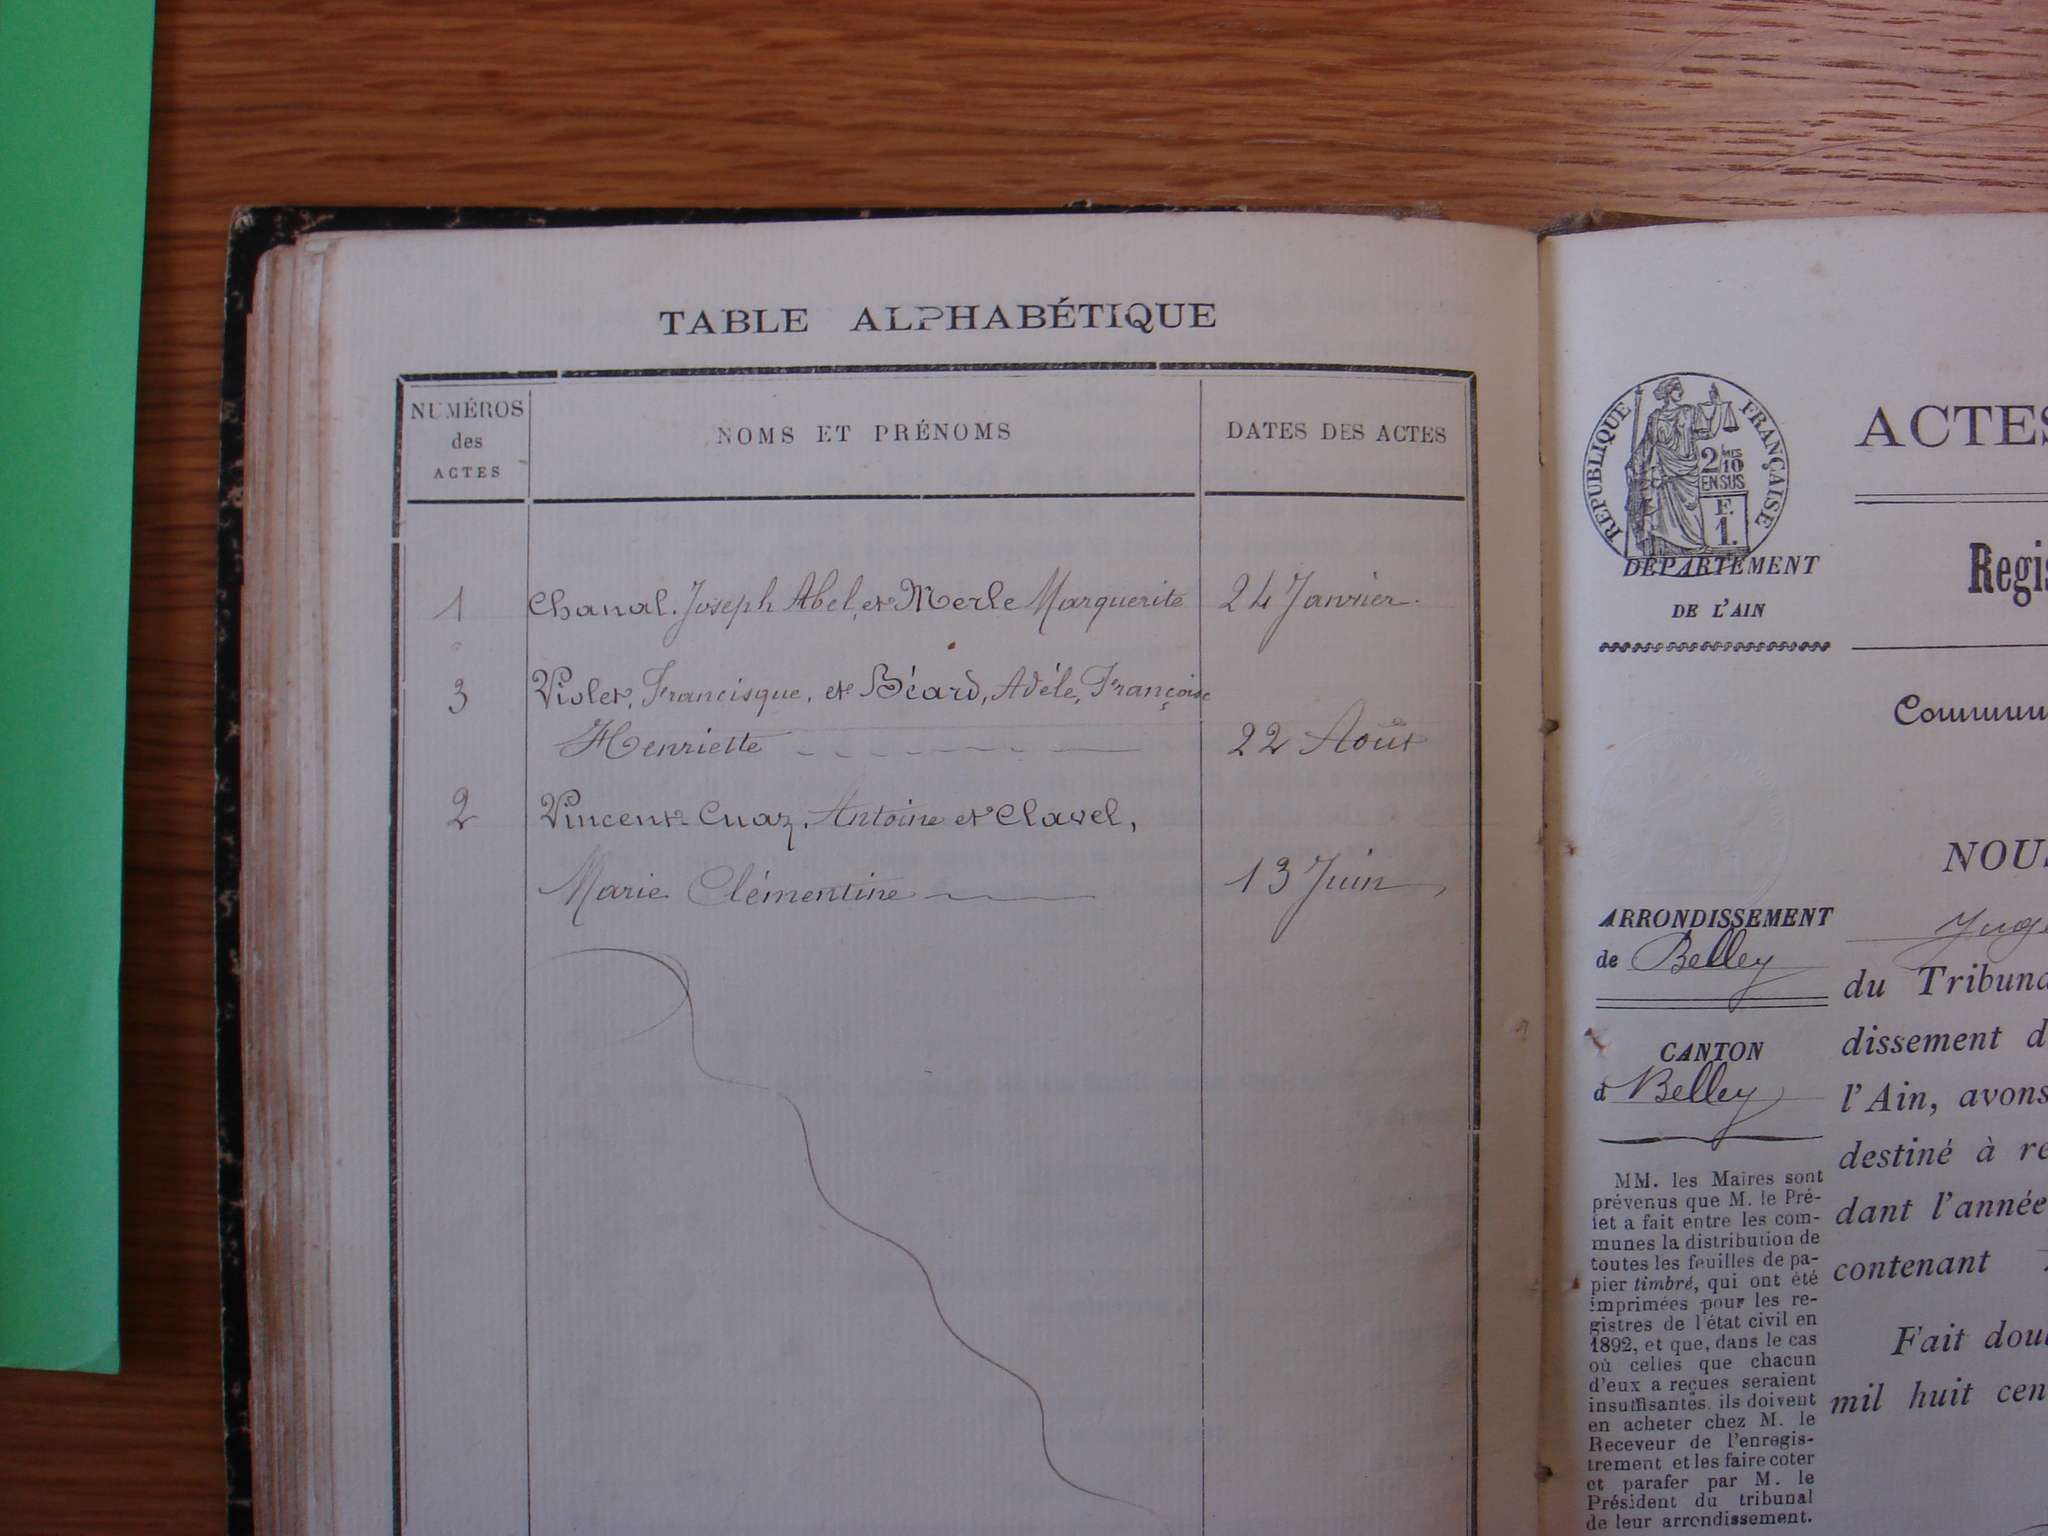 TABLE ALPHABÉTIQUE
NUMÉROS des ACTES
NOMS ET PRÉNOMS
DATES DES ACTES
1 Chanal. Joseph Abel, et Merle Marguerite 24 Janvier.
3 Violet, Francisque, et Béard, Adèle, Françoise
Henriette 22 Août
2 Vincent-Cuaz, Antoine et Clavel,
Marie Clémentine 13 Juin
RÉPUBLIQUE FRANÇAISE
2 10MES
EN SUS
E.
1.
DÉPARTEMENT
DE L'AIN
ARRONDISSEMENT
de Belley
CANTON
d Belley
MM. les Maires sont
prévenus que M. le Pré-
fet a fait entre les com-
munes la distribution de
toutes les feuilles de pa-
pier timbré, qui ont été
imprimées pour les re-
gistres de l'état civil en
1892, et que, dans le cas
où celles que chacun
d'eux a reçues seraient
insuffisantes, ils doivent
en acheter chez M. le
Receveur de l'enregis-
trement et les faire coter
et parafer par M. le
Président du tribunal
de leur arrondissement.
ACTES
Regis
Commun
NOUS
Juge
du Tribuna
dissement d
l'Ain, avons
destiné à re
dant l'année
contenant
Fait dou
mil huit cen